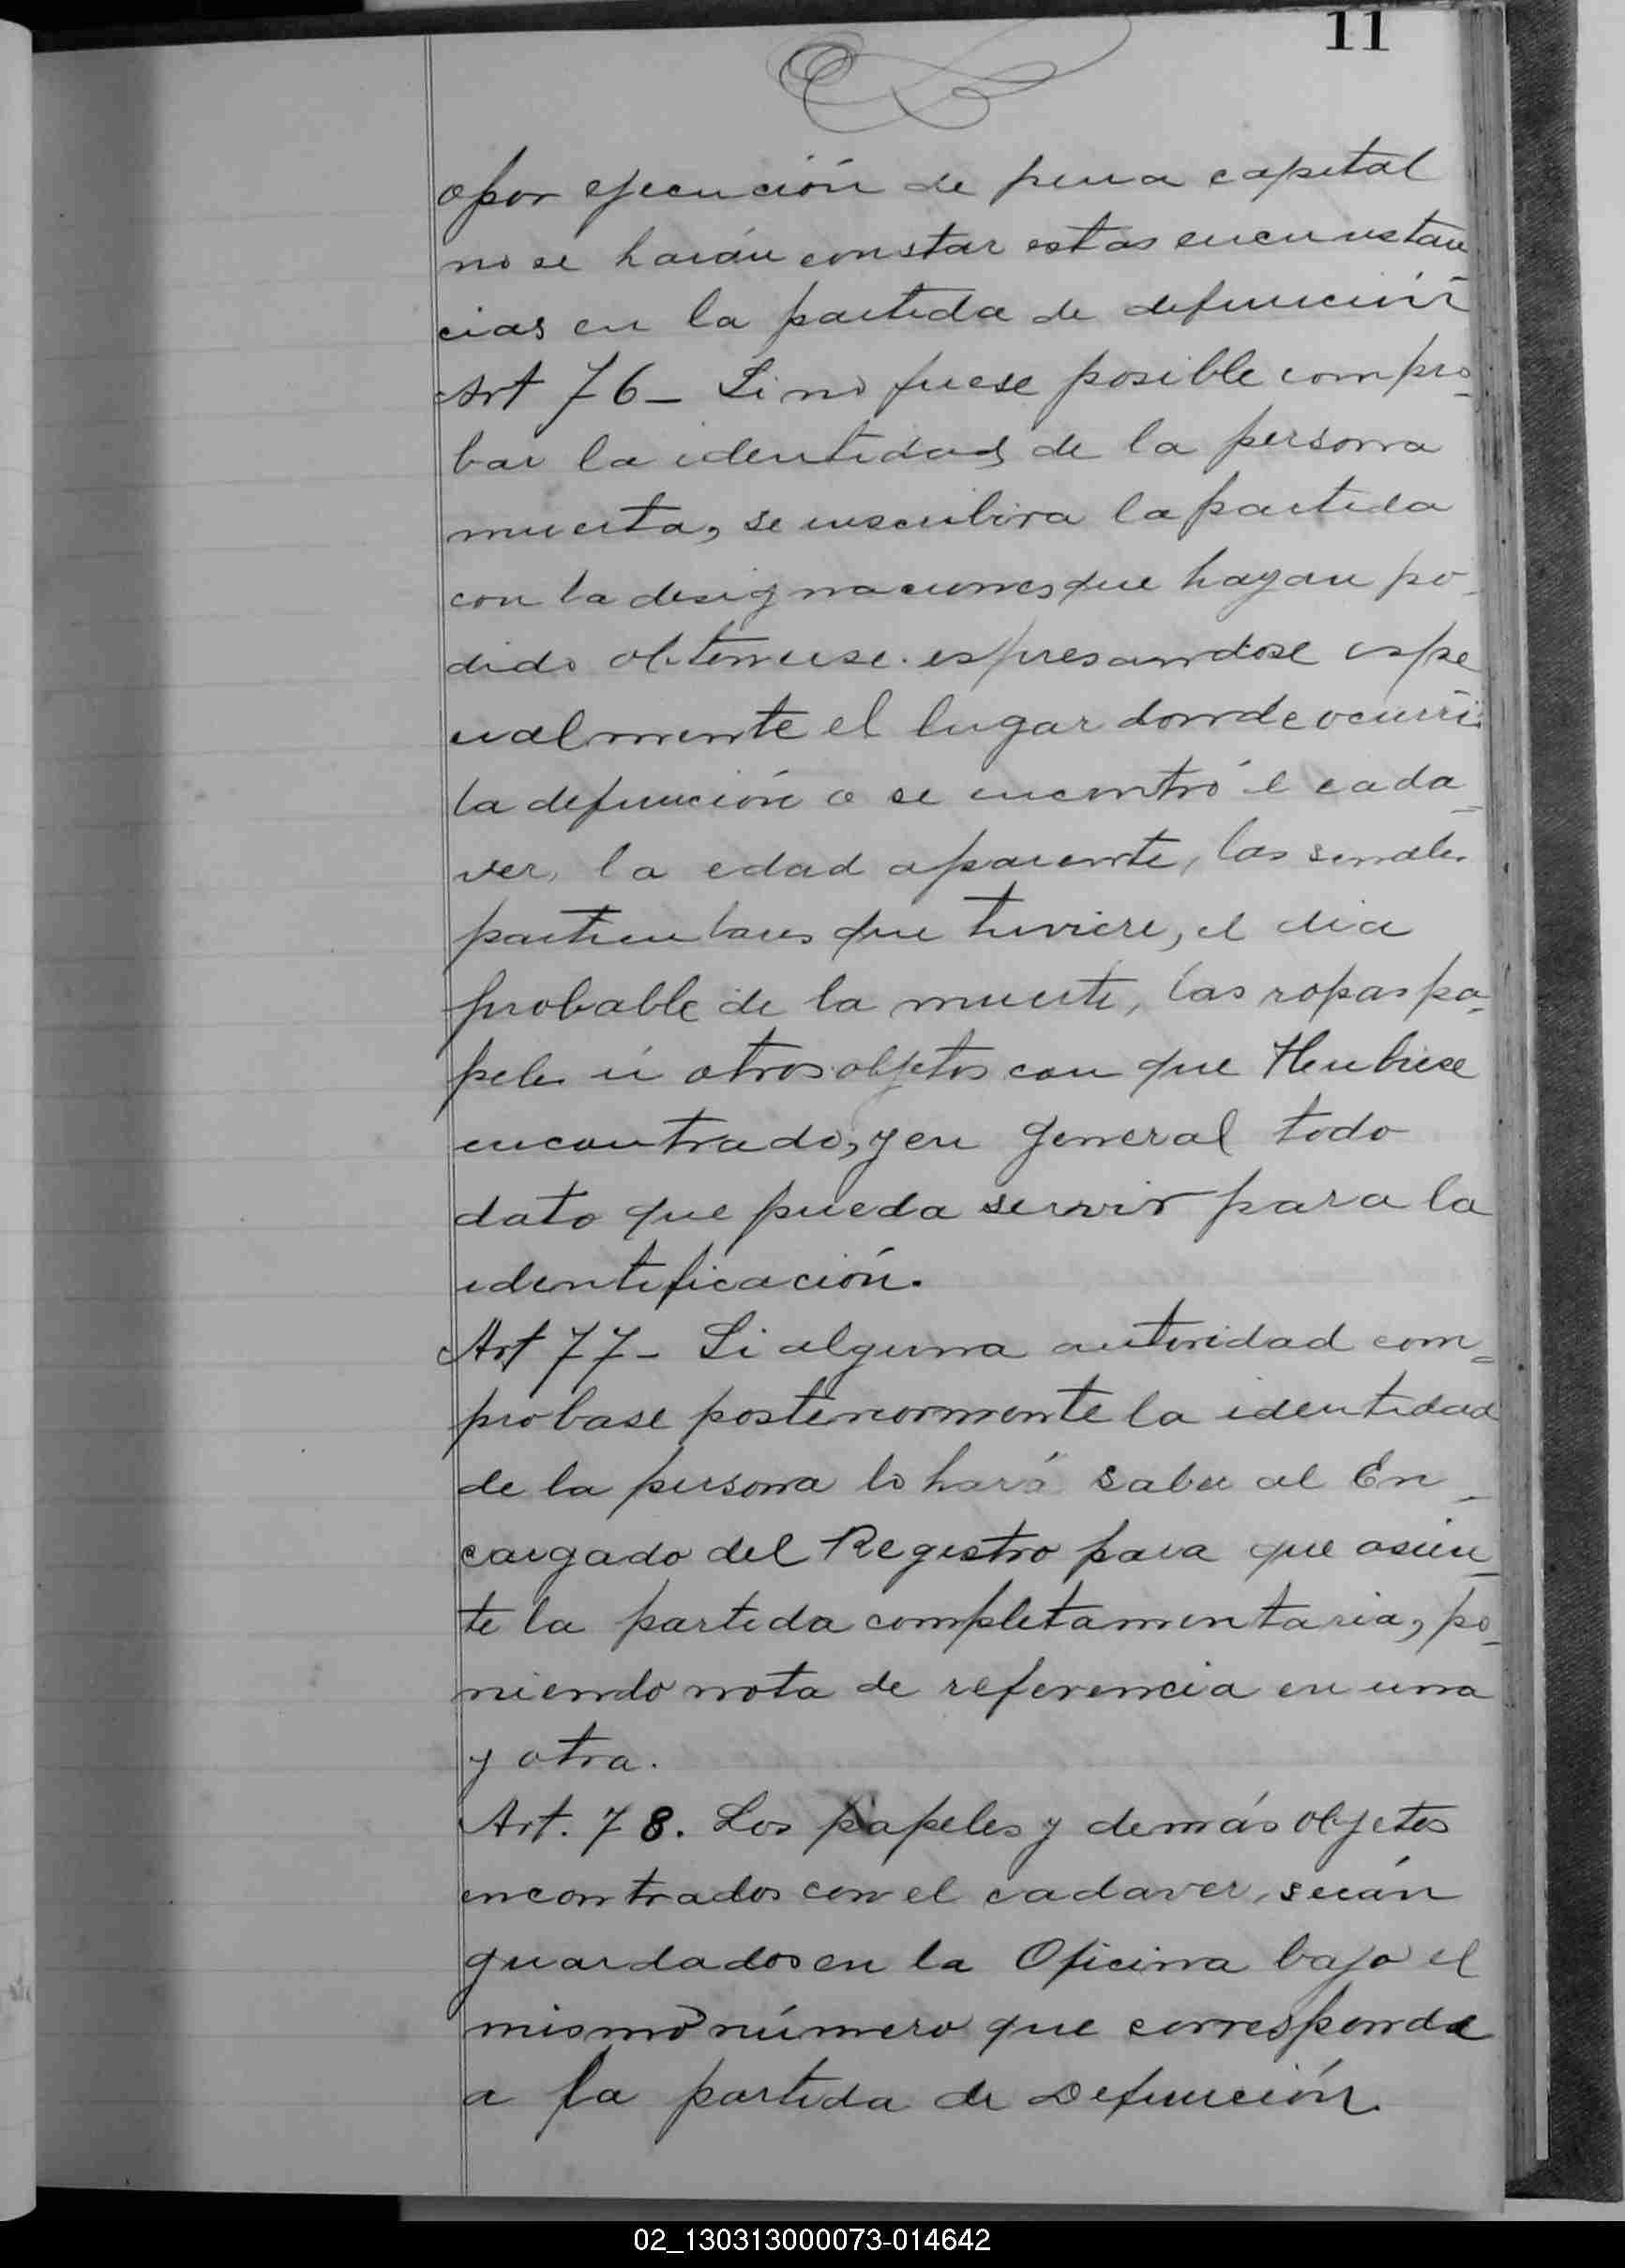 11
o por ejecución de pena capital
no se harán constar estas circunstan
cias en la partida de defunción
Art 76- Si no fuese posible compro-
bar la identidad de la persona
muerta, se inscribira la partida
con la designaciones que hayan po-
dido obtenerse. espresandose espe
cialmente el lugar donde ocurrió
la defunción o se encontró el cada-
ver, la edad aparente, las senales
particulares que tuviere, el dia
probable de la muerte, las ropas pa-
peles ú otros objetos con que Hubiese
encontrado, y en general todo
dato que pueda servir para la
identificación.
Art 77- Si alguna autoridad com-
probase posteriormente la identidad
de la persona lo hará saber al En-
cargado del Registro para que asien-
te la partida completamentaria, po-
niendo nota de referencia en una
y otra.
Art. 78. Los papeles y demás objetos
encontrados con el cadaver, serán
guardados en la Oficina bajo el
mismo número que corresponda
a la partida de Defunción.
02_130313000073-014642